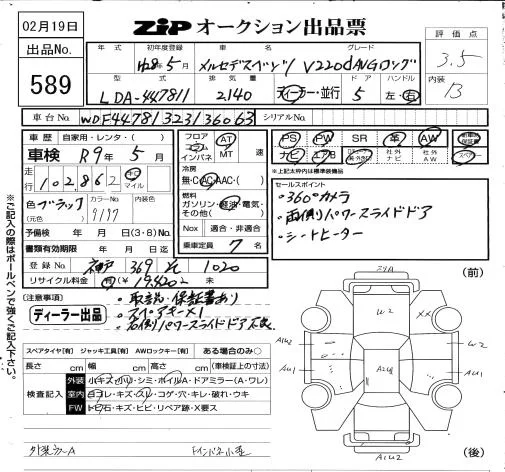 02月19日
ZIP オークション出品票
評価点
3.5
内装
B
出品No.
589
年式 初年度登録 車名 グレード
H28年5月 メルセデスベンツ V220d AVGロング
型式 排気量 ドア ハンドル
LDA-447811 2140 ディーラー・並行 5 左・右
車台No. WDF44781323136063 シリアルNo.
車歴 自家用・レンタ・( )
車検 R9年5月
走行 102,862 キロ マイル
色 ブラック カラーNo. 9197 内装色
(元色)
予備検 年 月 日(3・6)No.
書類有効期限 年 月 日迄
登録No. 神戸 369 そ 1020
リサイクル料金 有(¥19420)未
フロア コラム インパネ AT MT 速
冷房
無・C・AC・AAC・( )
燃料
ガソリン・軽油・電気・その他( )
Nox 適合・非適合
乗車定員 7名
PS PW SR 革 AW 新車時保証書
ナビ エアB 社外ナビ 社外AW スペアキー
※上記太枠内は標準装備品
セールスポイント
・360°カメラ
・両側パワースライドドア
・シートヒーター
(注意事項) ・取説・保証書あり
ディーラー出品 ・スペアキー×1
・右側パワースライドドア不良
スペアタイヤ[有] ジャッキ工具[有] AWロックキー[有] ある場合のみ○
長さ cm 幅 cm 高さ cm (車検証上の寸法)
検査記入 外装 小キズ・小凹・シミ・ホイルA・ドアミラー(A・ワレ)
室内 ヨゴレ・キズ・スレ・コゲ・穴・キレ・破れ・ウキ
FW トビ石・キズ・ヒビ・リペア跡・X要ス
外装カラーA
インパネ小歪
※ご記入の際はボールペンで強くご記入下さい。
(前)
W2
XX
AW2
W2
AU1
A2U1
AU1
AU2
(後)